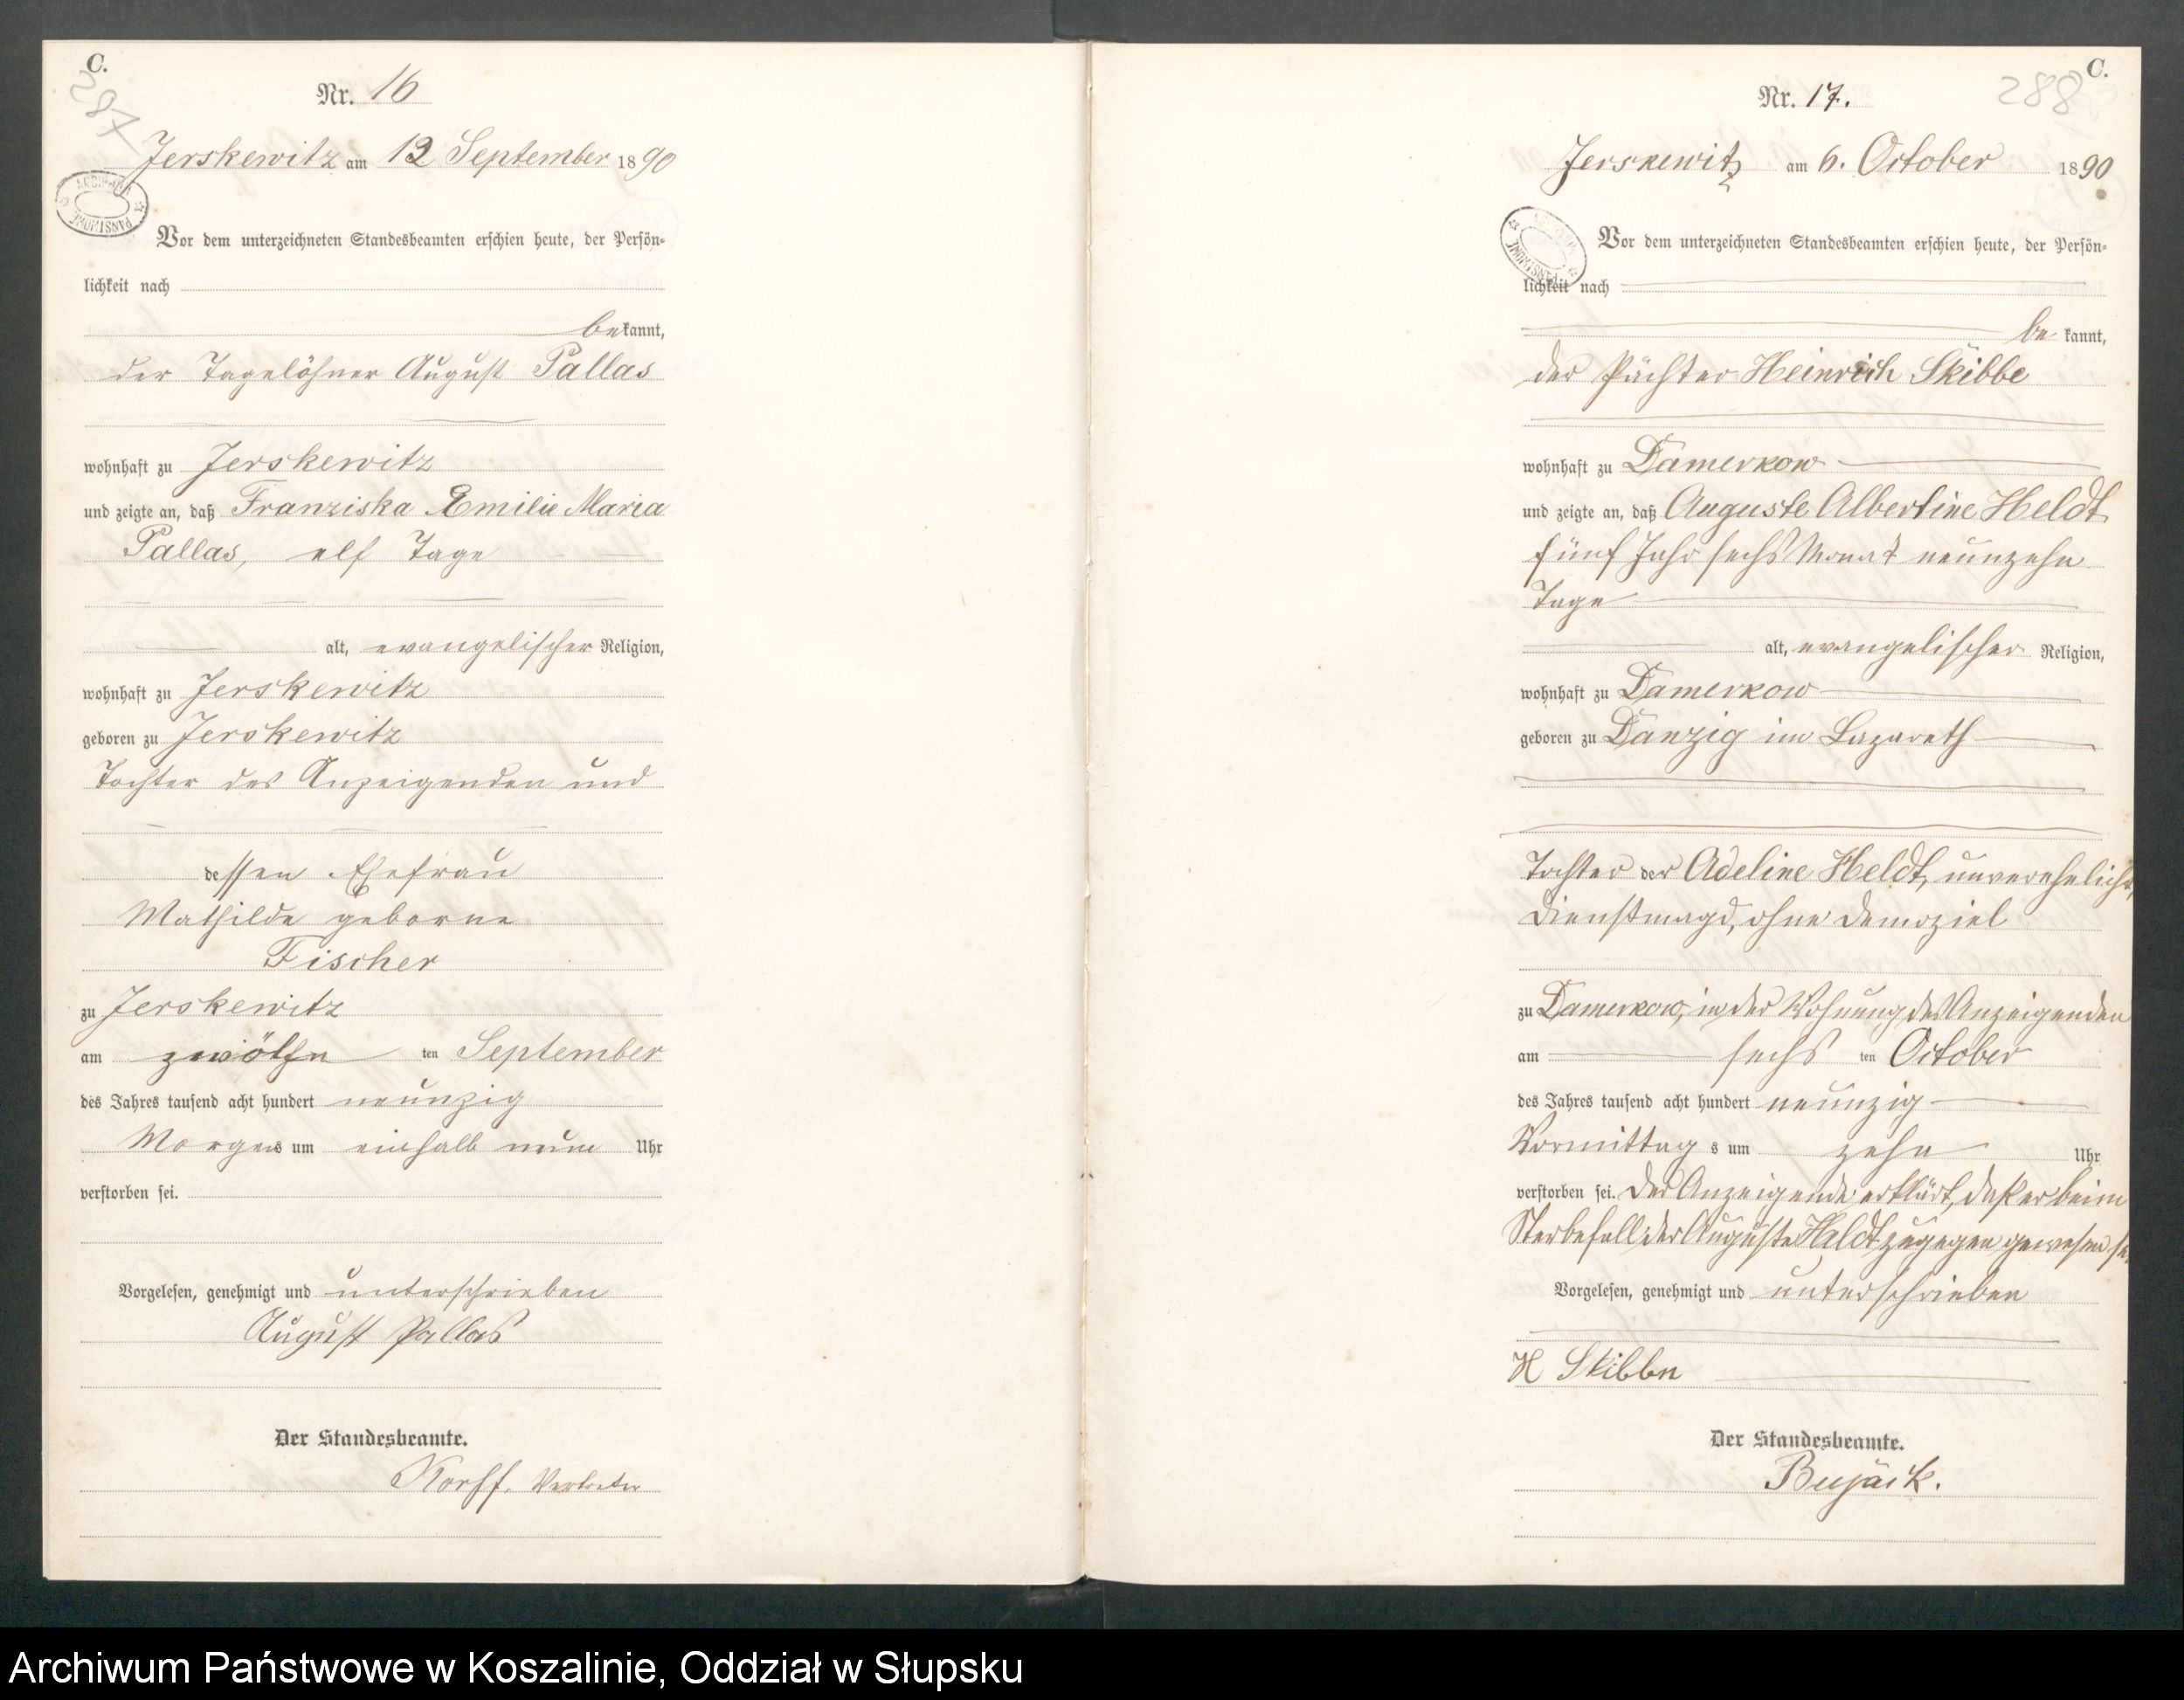 C.
287
Nr. 16
Jerskewitz am 12 September 1890
Vor dem unterzeichneten Standesbeamten erschien heute, der Persön-
lichkeit nach
bekannt,
der Tagelöhner August Pallas
wohnhaft zu Jerskewitz
und zeigte an, daß Franziska Emilie Maria
Pallas, elf Tage
alt, evangelischer Religion,
wohnhaft zu Jerskewitz
geboren zu Jerskewitz
Tochter des Anzeigenden und
dessen Ehefrau
Mathilde geborne
Fischer
zu Jerskewitz
am zwölfn ten September
des Jahres tausend acht hundert neunzig
Morgens um einhalb neun Uhr
verstorben sei.
Vorgelesen, genehmigt und unterschrieben
August Pallas
Der Standesbeamte.
Korff. Vertreter
C.
288
Nr. 17.
Jerskewitz am 6. October 1890
Vor dem unterzeichneten Standesbeamten erschien heute, der Persön-
lichkeit nach
be kannt,
der Pächter Heinrich Skibbe
wohnhaft zu Damerkow
und zeigte an, daß Auguste Albertine Heldt
fünf Jahr sechs Monat neunzehn
Tage
alt, evangelischer Religion,
wohnhaft zu Damerkow
geboren zu Danzig im Lazareth
Tochter der Adeline Heldt, unverehelicht,
Dienstmagd, ohne Domoziel
zu Damerkow, in der Wohnung des Anzeigenden
am sechs ten October
des Jahres tausend acht hundert neunzig
Vormittag s um zehn Uhr
verstorben sei. Der Anzeigende erklärt, daß er beim
Sterbefall der Auguste Heldt zugegen gewesen sei,
Vorgelesen, genehmigt und unterschrieben
H Skibbe
Der Standesbeamte.
Bujäck.
Archiwum Państwowe w Koszalinie, Oddział w Słupsku